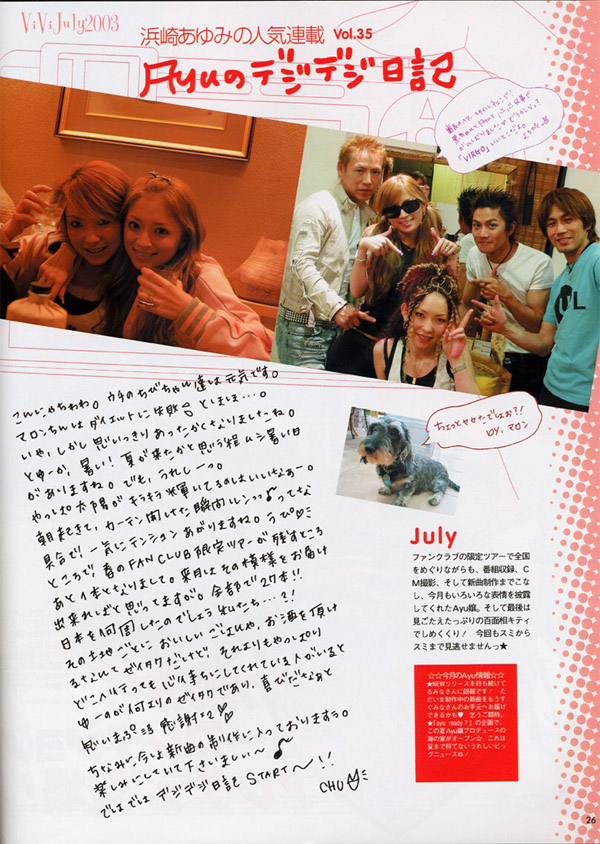 ViVi July2003
浜崎あゆみの人気連載 Vol.35
Ayuのデジデジ日記
「VIRGO」
こんにちゎわ。ウチのちびちゃん達は元気です。
マロンちんはダイエットに失敗しましま…。
いや、しかし思いっきりあったかくなりましたこね。
とゆーか、暑い!夏が来たかと思う程ムシ暑い日
がありますね。でも、うれしーっ。
やっぱ太陽がキラキラ輝いてるのはいいなぁー。
朝起きて、カーテン開けた瞬間ルンッッ♪ってな
具合で!一気にテンションあがりますね。
ところで、春のFAN CLUB限定ツアーが残すところ
あと1本となりまして。来月はその模様をお届け
出来ればと思ってますが。全部で27本!!
日本を何周したのでしょう私たち…?!
その土地ごとに おいしいごはんや、お酒を頂け
るなんてゼイタクだけど、それよりもやっぱり
どこへ行っても待ちにしてくれている人がいると
ゆーのが何よりのゼイタクであり、喜びだなぁと
思います 感謝×2
ちなみに今は新曲の制作に入っておりますぅ。
楽しみにしていて下さいましい〜♪
ではでは デジデジ日記 START〜!!
CHU
ちょっとヤセたでしょお?!
by.マロン
July
ファンクラブの限定ツアーで全国
をめぐりながらも、番組収録、C
M撮影、そして新曲制作までこな
し、今月もいろいろな表情を披露
してくれたAyu嬢。そして最後は
見ごたえたっぷりの百面相キティ
でしめくくり! 今回もスミから
スミまで見逃せませんっ★
☆☆今月のAyu情報☆☆
★NEWリリースを待ち続けて
るみなさんに朗報です! た
だいま制作中の新曲をもうす
ぐみなさんのお手元へお届け
できるかも♥ 乞うご期待。
★「ayu ready?」の企画で、
この夏Ayu嬢プロデュースの
海の家がオープン☆ これは
夏まで待てないうれしいビッ
グニュースね!
26